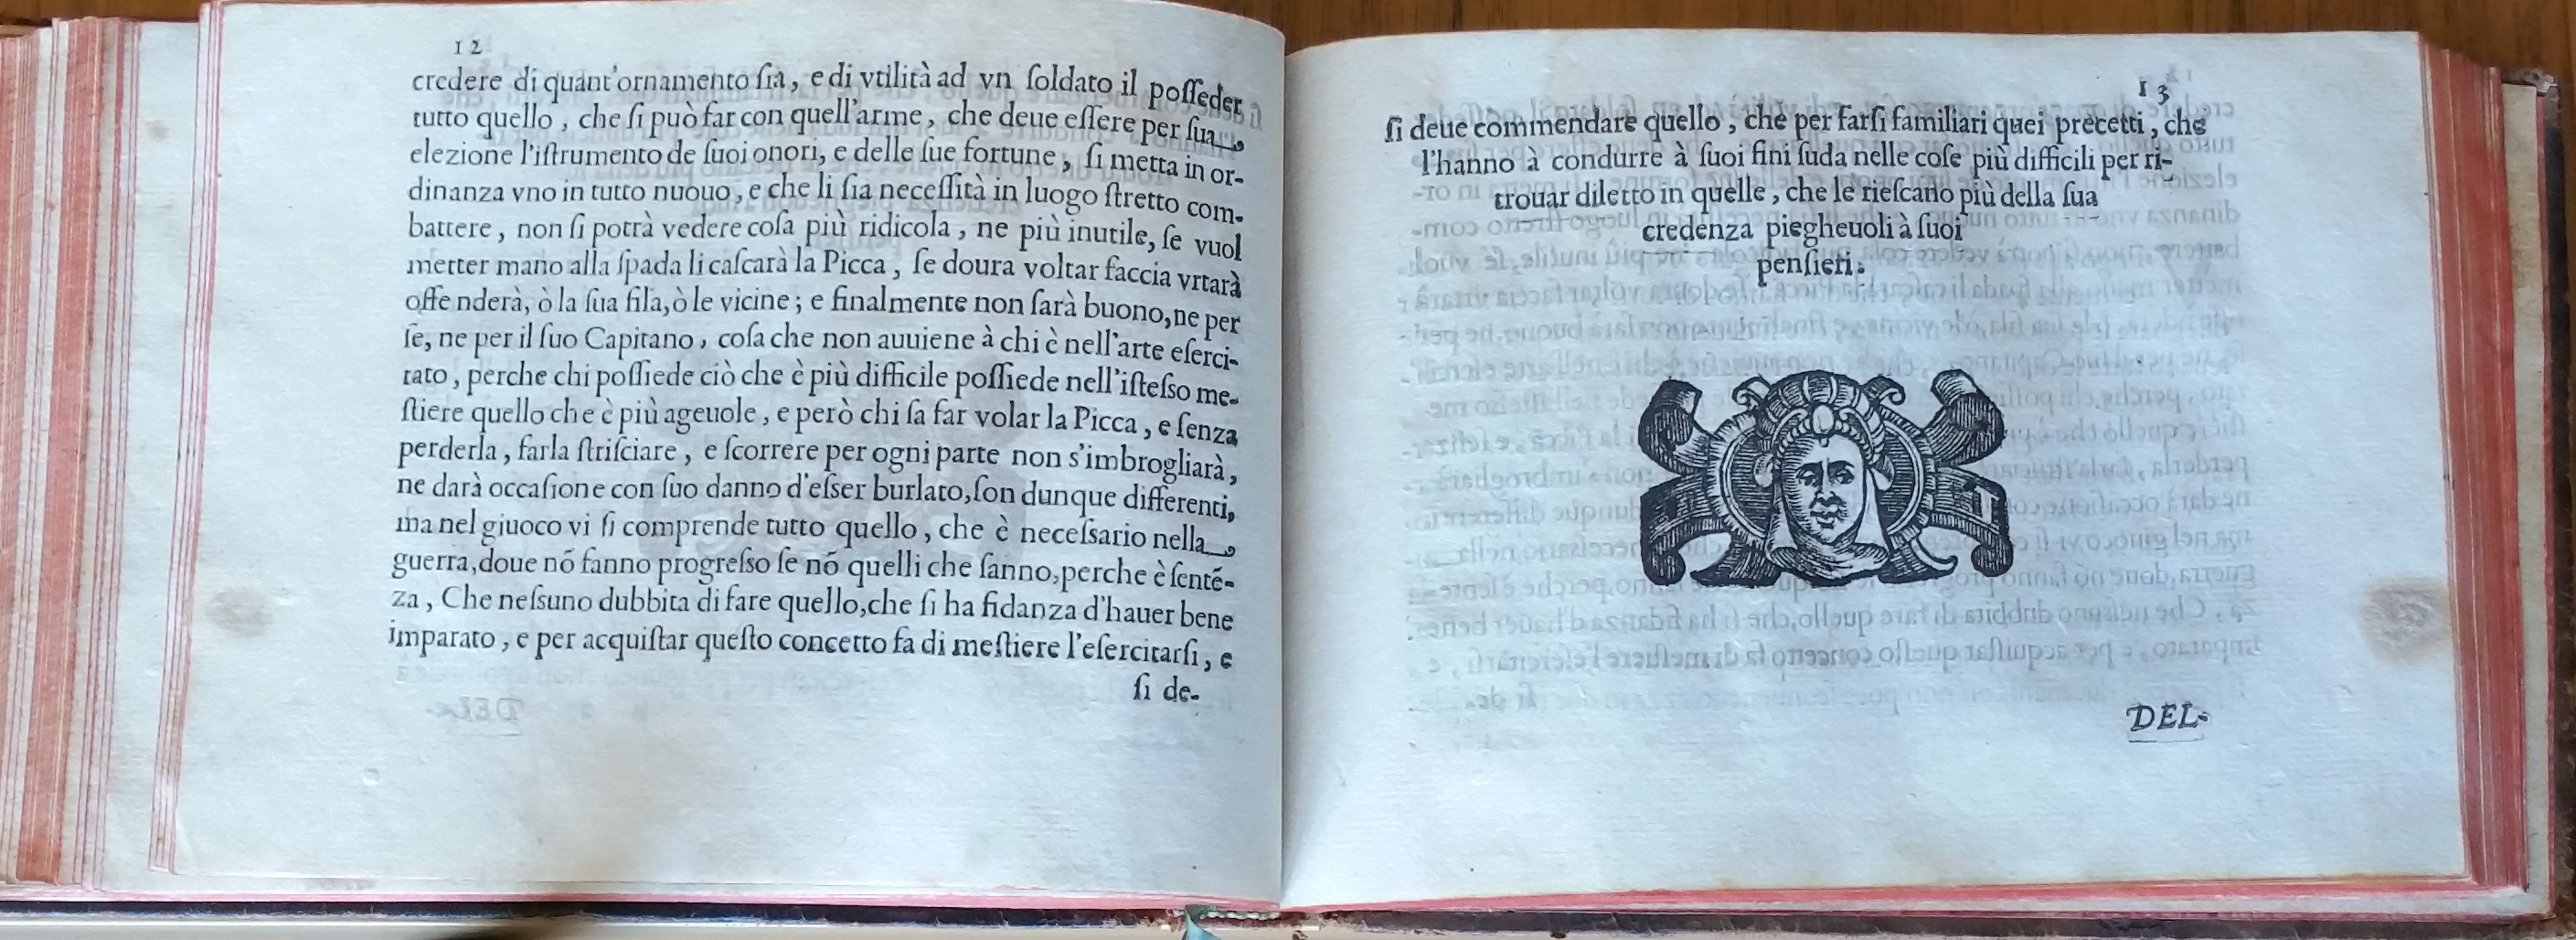 12
credere di quant'ornamento ſia, e di vtilità ad vn ſoldato il poſſeder
tutto quello, che ſi può far con quell'arme, che deue eſſere per ſua
elezione l'iſtrumento de ſuoi onori, e delle ſue fortune, ſi metta in or-
dinanza vno in tutto nuouo, e che li ſia neceſſità in luogo ſtretto com-
battere, non ſi potrà vedere coſa più ridicola, ne più inutile, ſe vuol
metter mano alla ſpada li caſcarà la Picca, ſe doura voltar faccia vrtarà
offe nderà, ò la ſua fila, ò le vicine; e finalmente non ſarà buono, ne per
ſe, ne per il ſuo Capitano, coſa che non auuiene à chi è nell'arte eſerci-
tato, perche chi poſſiede ciò che è più difficile poſſiede nell'iſteſso me-
ſtiere quello che è più ageuole, e però chi ſa far volar la Picca, e ſenza
perderla, farla ſtriſciare, e ſcorrere per ogni parte non s'imbrogliarà,
ne darà occaſione con ſuo danno d'eſser burlato, ſon dunque differenti,
ma nel giuoco vi ſi comprende tutto quello, che è neceſsario nella
guerra, doue nō fanno progreſso ſe nō quelli che ſanno, perche è ſentē-
za, Che neſsuno dubbita di fare quello, che ſi ha fidanza d'hauer bene
imparato, e per acquiſtar queſto concetto fa di meſtiere l'eſercitarſi, e
ſi de-
13
ſi deue commendare quello, che per farſi familiari quei precetti, che
l'hanno à condurre à ſuoi fini ſuda nelle coſe più difficili per ri-
trouar diletto in quelle, che le rieſcano più della ſua
credenza piegheuoli à ſuoi
penſieri.
DEL-